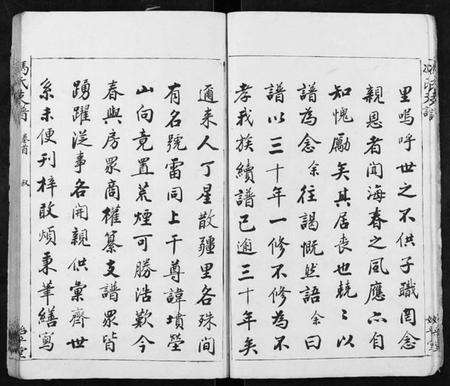 里嗚呼世之不供子職罔念
親恩者聞海春之風應亦自
知愧勵矣其居喪也兢〻以
譜為念余往謁慨然語余曰
譜以三十年一修不修為不
孝我族續譜已逾三十年矣
邇来人丁星散疆里各殊間
有名號雷同上干尊諱墳塋
山向竟置荒煙可勝浩歎今
春與房眾商權纂支譜眾皆
踴躍從事各開親供彙齊世
系未便刊梓敢煩秉筆繕寫
馮氏支譜 卷首 叙